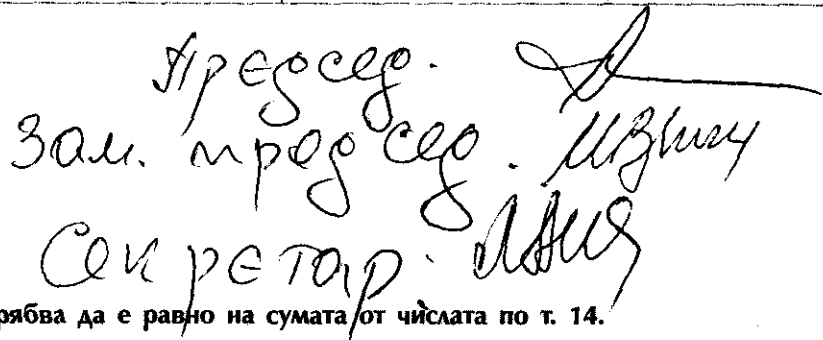 Председ.
Зам. председ.
Секретар.
рябва да е равно на сумата от числата по т. 14.